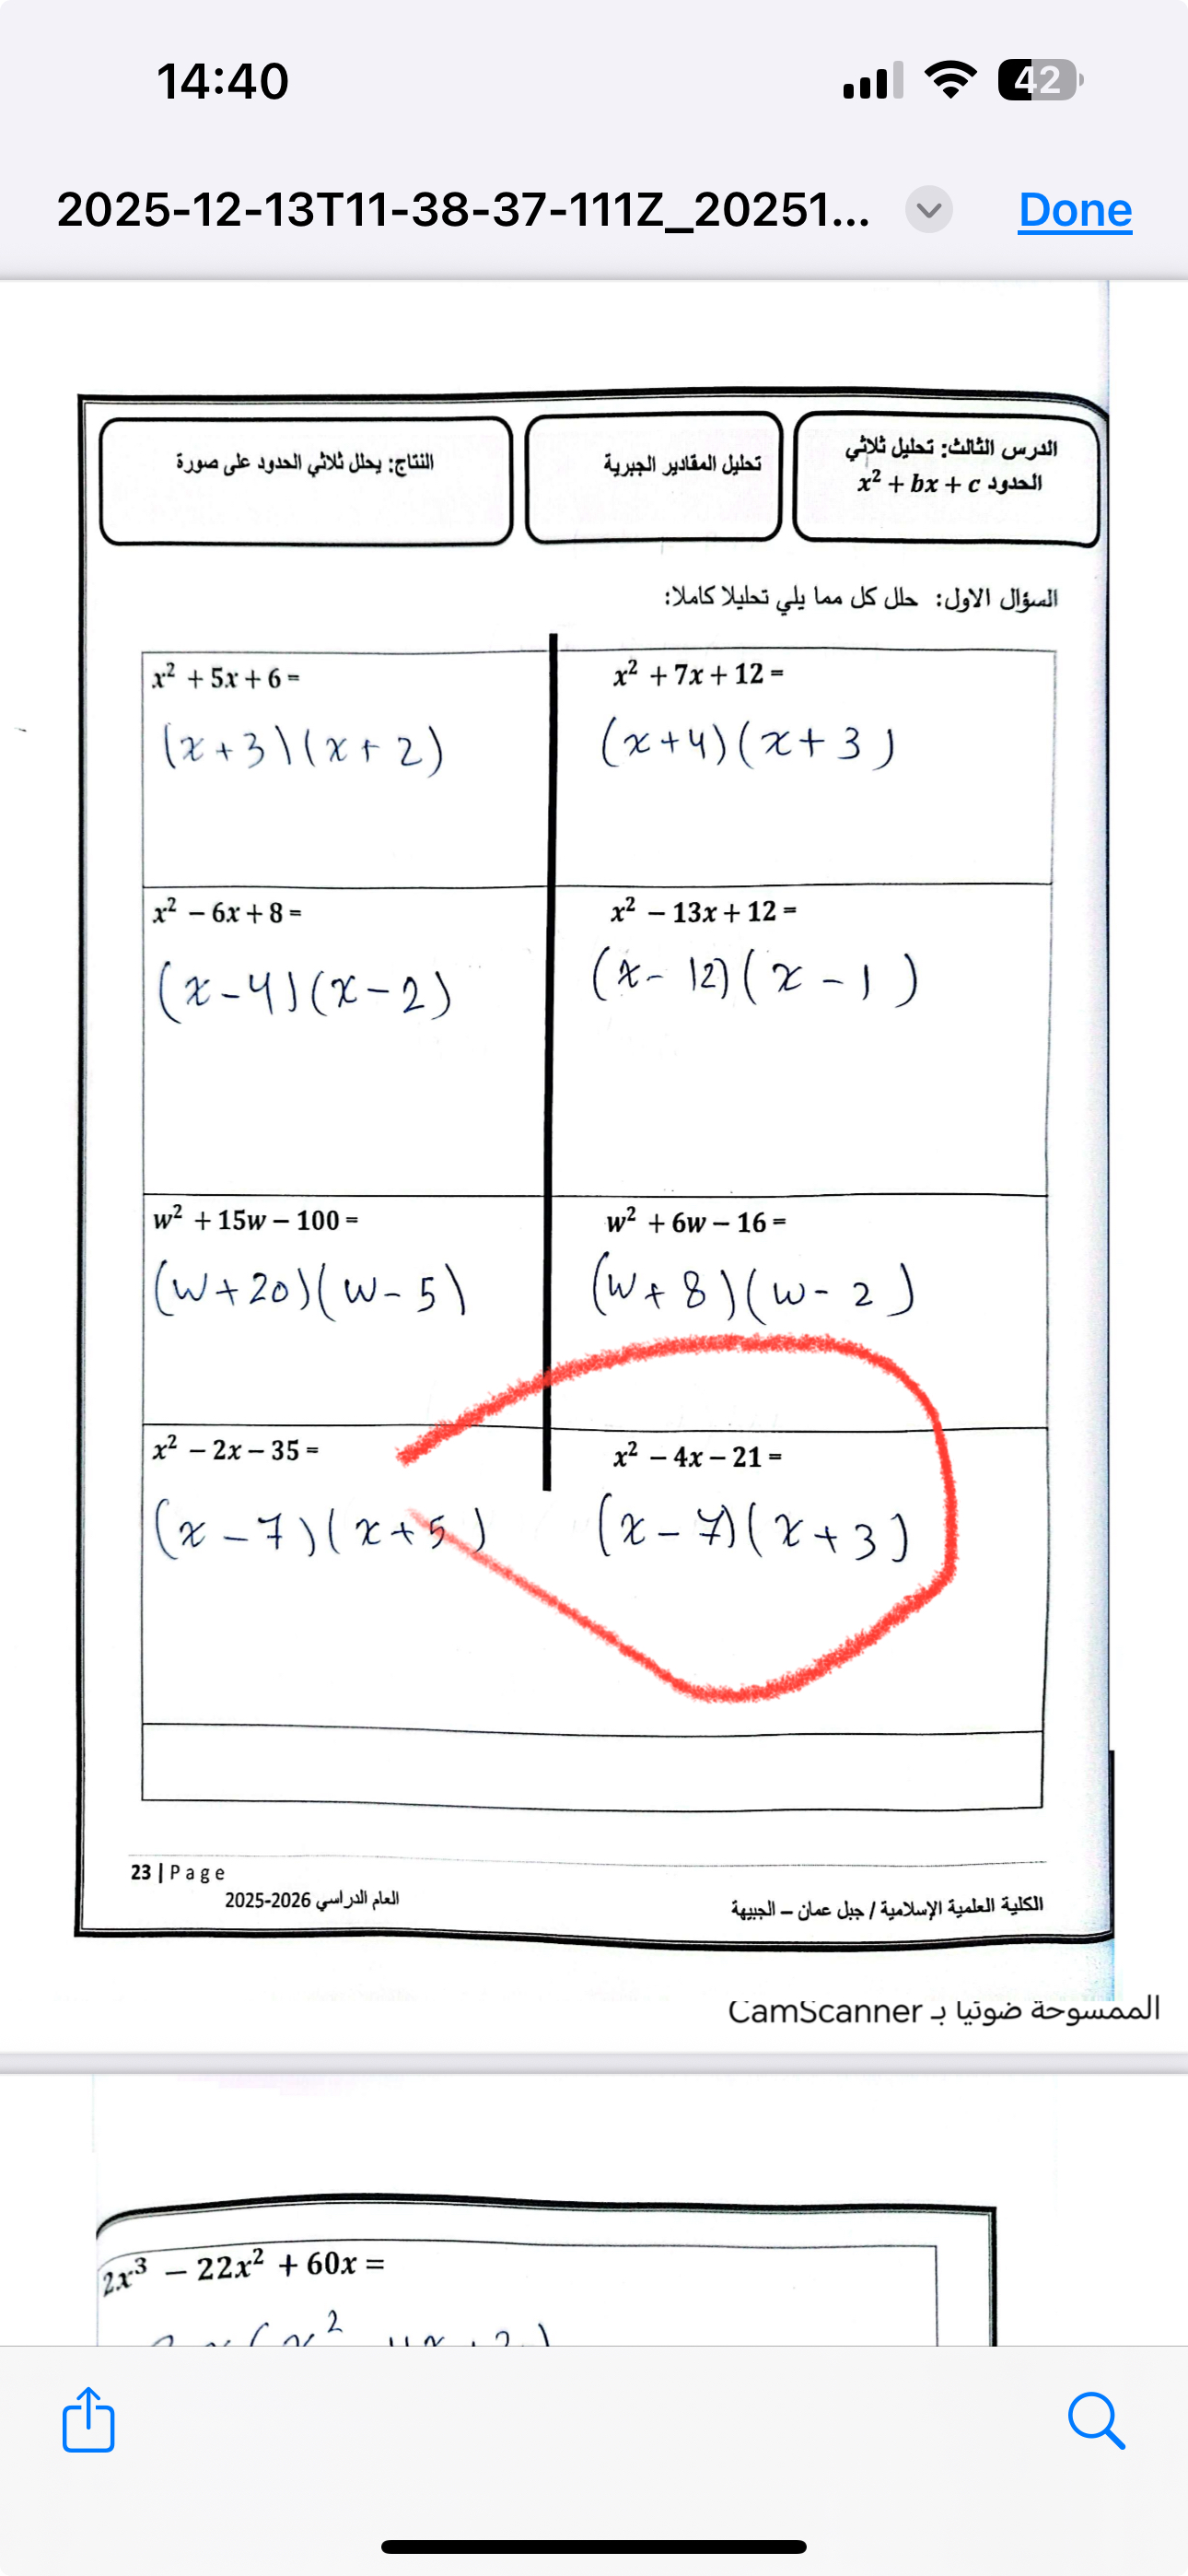 14:40
42
2025-12-13T11-38-37-111Z_20251...
Done
الدرس الثالث: تحليل ثلاثي
الحدود x² + bx + c
تحليل المقادير الجبرية
النتاج: يحلل ثلاثي الحدود على صورة
السؤال الاول: حلل كل مما يلي تحليلا كاملا:
x² + 5x + 6 =
(x+3)(x+2)
x² + 7x + 12 =
(x+4)(x+3)
x² − 6x + 8 =
(x-4)(x-2)
x² − 13x + 12 =
(x-12)(x-1)
w² + 15w − 100 =
(w+20)(w-5)
w² + 6w − 16 =
(w+8)(w-2)
x² − 2x − 35 =
(x-7)(x+5)
x² − 4x − 21 =
(x-7)(x+3)
23 | Page
العام الدراسي 2025-2026
الكلية العلمية الإسلامية / جبل عمان – الجبيهة
الممسوحة ضوئيا بـ CamScanner
2x³ − 22x² + 60x =